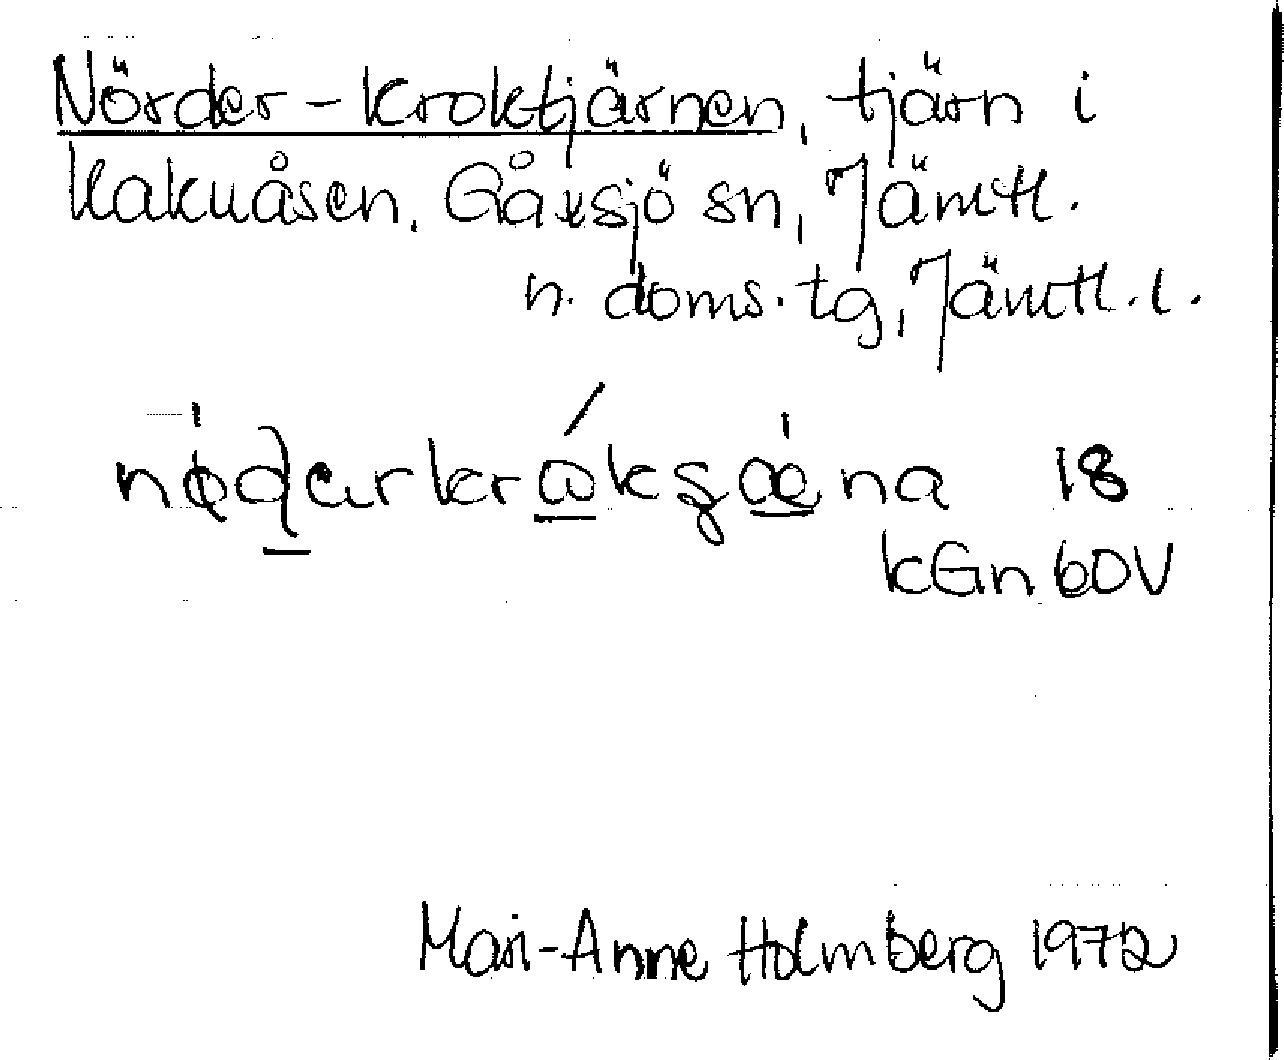 Nörder-Kroktjärnen, tjärn i
Kakuåsen, Gåxsjö sn, Jämtl.
n. doms. tg, Jämtl. l.
18
kGn 60V
Mari-Anne Holmberg 1972